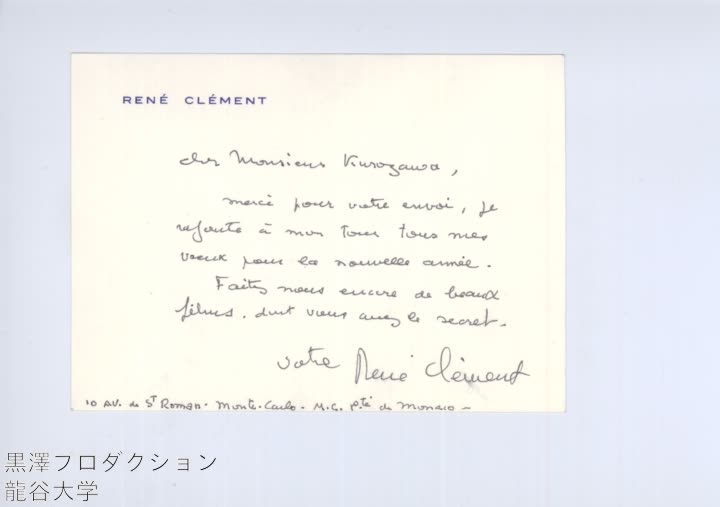 RENÉ CLÉMENT
cher Monsieur Kurozawa,
merci pour votre envoi, je
rajoute à mon tour tous mes
voeux pour la nouvelle année.
Faites nous encore de beaux
films. dont vous avez le secret.
votre René Clément
10 AV. de St Roman. Monte-Carlo - M.C. Pté de Monaco -
黒澤プロダクション
龍谷大学